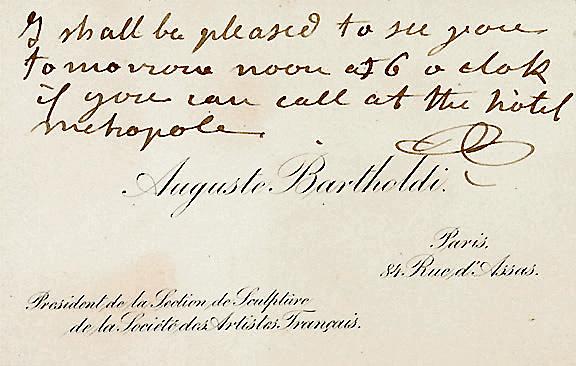 I shall be pleased to see you
tomorrow noon at 6 o clok
if you can call at the hotel
metropole
Auguste Bartholdi.
Paris.
84. Rue d'Assas.
Président de la Section de Sculpture
de la Société des Artistes Français.